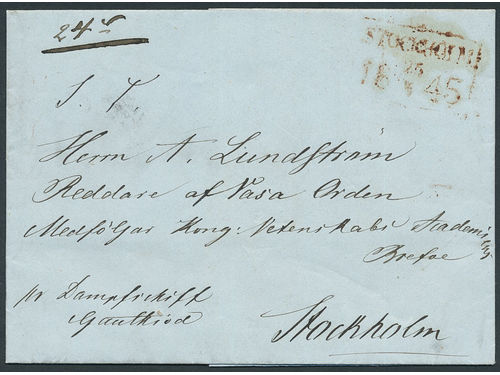 24
STOCKHOLM
25
18 45
S. T.
Herrn A. Lundström
Reddare af Vasa Orden
Medföljar Kong: Vetenskabs Academiens
Brefve
pr Dampfschiff
Gauthiod
Stockholm